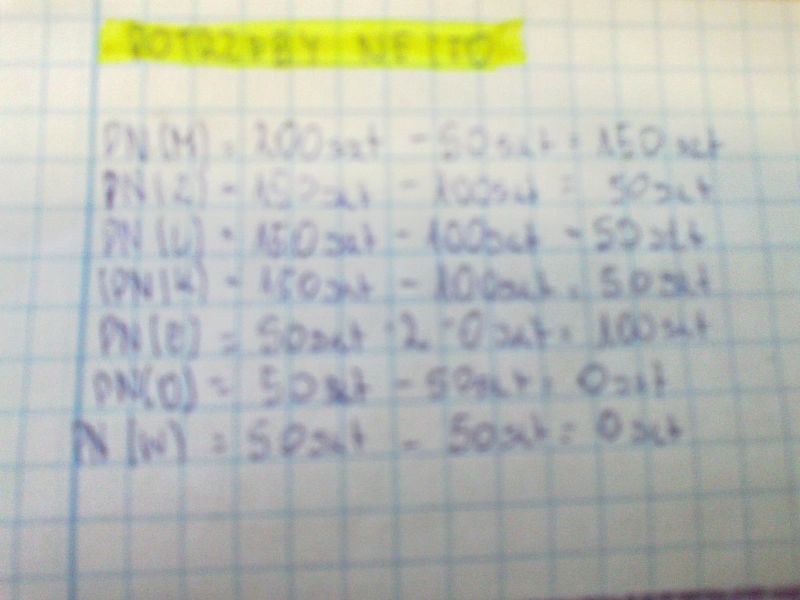 POTRZEBY NETTO
PN(M) = 200szt - 50szt = 150szt
PN(Z) = 150szt - 100szt = 50szt
PN(L) = 150szt - 100szt = 50szt
PN(K) = 150szt - 100szt = 50szt
PN(E) = 50szt · 2 - 0szt = 100szt
PN(O) = 50szt - 50szt = 0szt
PN(W) = 50szt - 50szt = 0szt